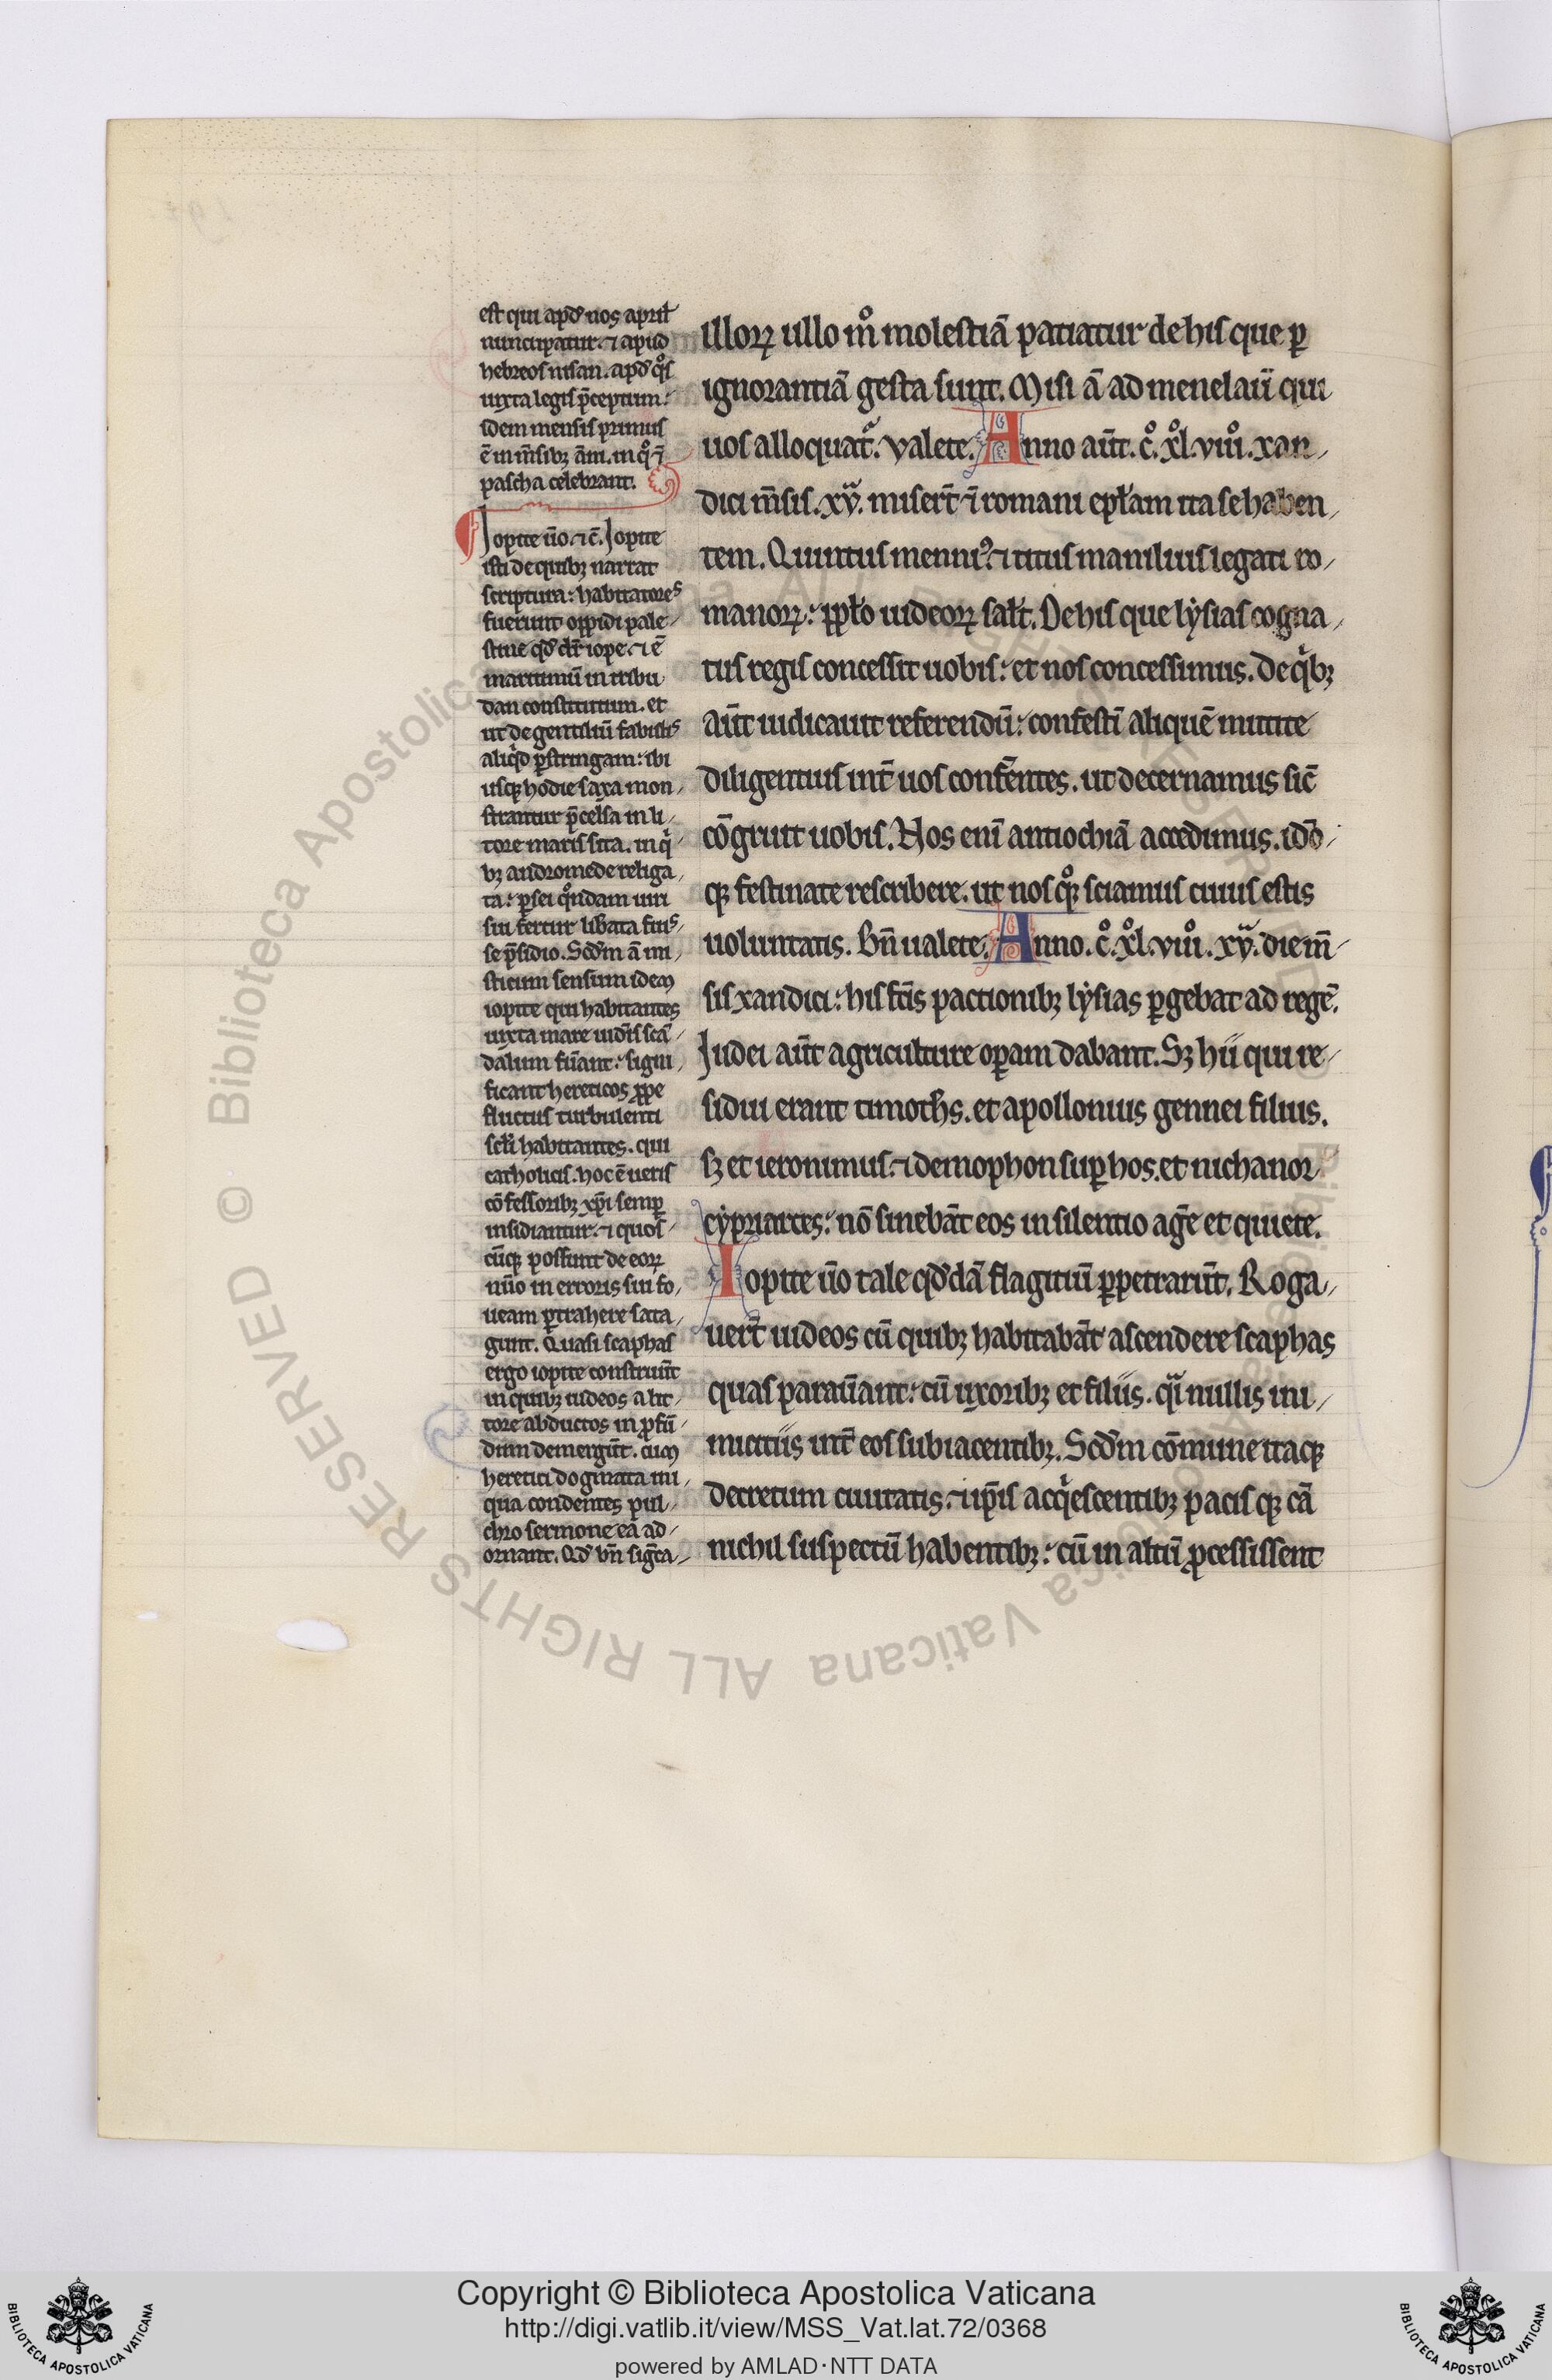 est qui apd' uos april'
nuncupatur. ⁊ apud
hebreos nisan. apd' q̊s
iuxta legis p̄ceptum:
idem mensis primus
ē in m̄sibꝫ ãni. in q̊ ⁊
pascha celebrant.
Ioppite ũo. ⁊ c̄. Ioppite
isti de quibꝫ narrat
scriptura: habitatores
fuerunt oppidi pale/
stine qd' dr̄ iope. ⁊ ē
maritimũ in tribu
dan constitutum. et
ut de gentiliũ fabulis
aliq̇d p̱stringam: ibi
usqꝫ hodie saxa mon/
strantur p̄celsa in li/
tore maris sita. in q̇/
bꝫ andromede religa/
ta: p̱sei q̊ndam uiri
sui fertur lib̄ata fuis/
se p̄sidio. Scd'm ã mi/
sticum sensum idem
ioppite qui habitantes
iuxta mare iud̄is scã/
dalum fũant: signi/
ficant hereticos ꝓpe
fluctus turbulenti
scl'i habitantes. qui
catholicis. hoc ē ueris
cõfessoribꝫ xp̄i semp̱
insidiantur. ⁊ quos/
cũqꝫ possunt de eoꝝ
nũo in erroris sui fo/
ueam p̱trahere sata/
gunt. Quasi scaphas
ergo ioppite construũt
in quibꝫ iudeos a lit/
tore abductos in ꝓfũ/
dum demergũt. cum
heretici dogmata ini/
qua condentes pul/
chro sermone ea ad/
ornant. Qd' bn̄ sig̃ta/
illoꝝ ullo m̊ molestiã patiatur de his que p̱
ignorantiã gesta sunt. Misi ã ad menelaũ qui
uos alloquat᷑. Valete. Anno aũt. c̊. x̊l. viii̊. xan/
dici m̄sis. xv. miser̄t ⁊ romani epl'am ita se haben/
tem. Quintus menniꝰ. ⁊ titus manilius legati ro/
manoꝝ: ppl'o iudeoꝝ sal't. De his que lysias cogna/
tus regis concessit uobis: et nos concessimus. De q̇bꝫ
aũt iudicauit referendũ: confestĩ aliquē mittite
diligentius int̄ uos conf̄entes. ut decernamus sic̄
cõgruit uobis. Nos enĩ antiochiã accedimus. idõ/
qꝫ festinate rescribere. ut nos q̊qꝫ sciamus cuius estis
uoluntatis. Bn̄ ualete. Anno. c̊. x̊l. viii̊. xv. die m̄/
sis xandici: his fc̄is pactionibꝫ lysias p̱gebat ad regē.
Iudei aũt agriculture op̱am dabant. Sꝫ hii qui re/
sidui erant timoth̄s. et apollonius gennei filius.
sꝫ et ieronimus. ⁊ demophon sup̱ hos. et nichanor
cypriartes: nõ sinebãt eos in silentio ag̃e et quiete.
Ioppite ũo tale qd'dã flagitiũ p̱petrarũt. Roga/
uer̄t iudeos cũ quibꝫ habitabãt ascendere scaphas
quas parauãnt: cũ uxoribꝫ et filiis. q̃i nullis ini/
micitiis int̄ eos subiacentibꝫ. Scd'm cõmune itaqꝫ
decretum ciuitatis. ⁊ ip̄is acq̇escentibꝫ pacis qꝫ cã
nichil suspectũ habentibꝫ: cũ in altũ ꝓcessissent
Copyright © Biblioteca Apostolica Vaticana
http://digi.vatlib.it/view/MSS_Vat.lat.72/0368
powered by AMLAD·NTT DATA
BIBLIOTECA APOSTOLICA VATICANA
BIBLIOTECA APOSTOLICA VATICANA
© Biblioteca Apostolica Vaticana ALL RIGHTS RESERVED